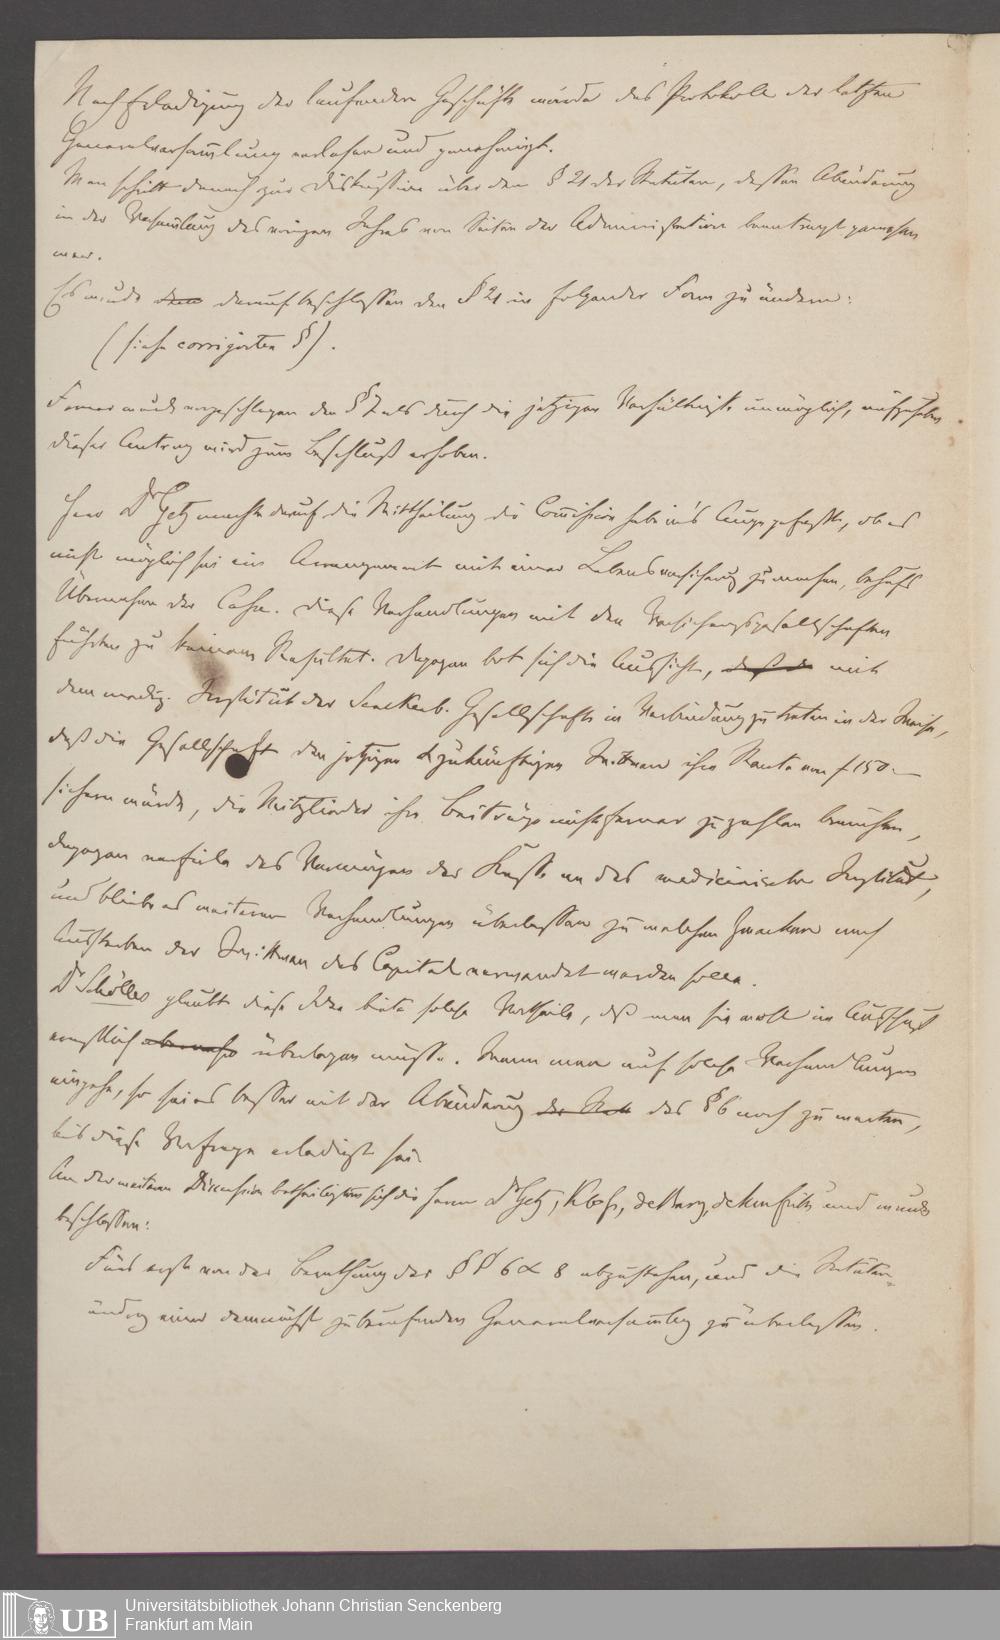 Nach Erledigung der laufenden Geschäfte wurde das Protokoll der letzten
Generalversammlung verlesen und genehmigt.
Man schritt danach zur Diskussion über den § 21 der Statuten, dessen Abänderung
in der Versammlung des vorigen Jahres von Seiten der Administration beantragt gewesen
war.
Es wurde darauf beschlossen den § 21 in folgender Form zu ändern:
(siehe corrigirten §).
Ferner wurde vorgeschlagen den § 7 als durch die jetzigen Verhältniße unmöglich, aufzuheben
dieser Antrag wird zum Beschluß erhoben.
Herr Dr Getz machte darauf die Mittheilung die Commission habe in's Auge gefaßt, ob es
nicht möglich sei ein Arrangement mit einer Lebensversicherung zu machen, behufs
Übernahme der Casse. Diese Verhandlungen mit den Versicherungsgesellschaften
führten zu keinem Resultat. Dagegen bot sich die Aussicht, daß die mit
dem mediz. Institut der Senckenb. Gesellschaft in Verbindung zu treten in der Weise,
daß die Gesellschaft den jetzigen & zukünftigen Wittwen ihre Rente von f 150.—
sichern würde, die Mitglieder ihre Beiträge nicht ferner zu zahlen brauchen,
dagegen verfiele das Vermögen der Kasse an das medicinische Institut,
und bliebe es weiteren Verhandlungen überlassen zu welchen Zwecken nach
Aussterben der Wittwen das Capital verwendet werden solle.
Dr Schölles glaubt diese Idee biete solche Vortheile, daß man sie wohl im Ausschuß
ernstlich überlegen müsse. Wenn man auf solche Verhandlungen
eingehe, so sei es besser mit der Abänderung des § 6 noch zu warten,
bis diese Vorfrage erledigt sei.
An der weiteren Discussion betheiligten sich die Herren Dr Getz, Kloß, de Bary, und wurde
beschlossen:
Fürs erste von der Berathung der §§ 6 & 8 abzustehen, und die Statuten-
ändrg einer demnächst zu berufenden Generalversammlg zu überlassen.
UB
Universitätsbibliothek Johann Christian Senckenberg
Frankfurt am Main